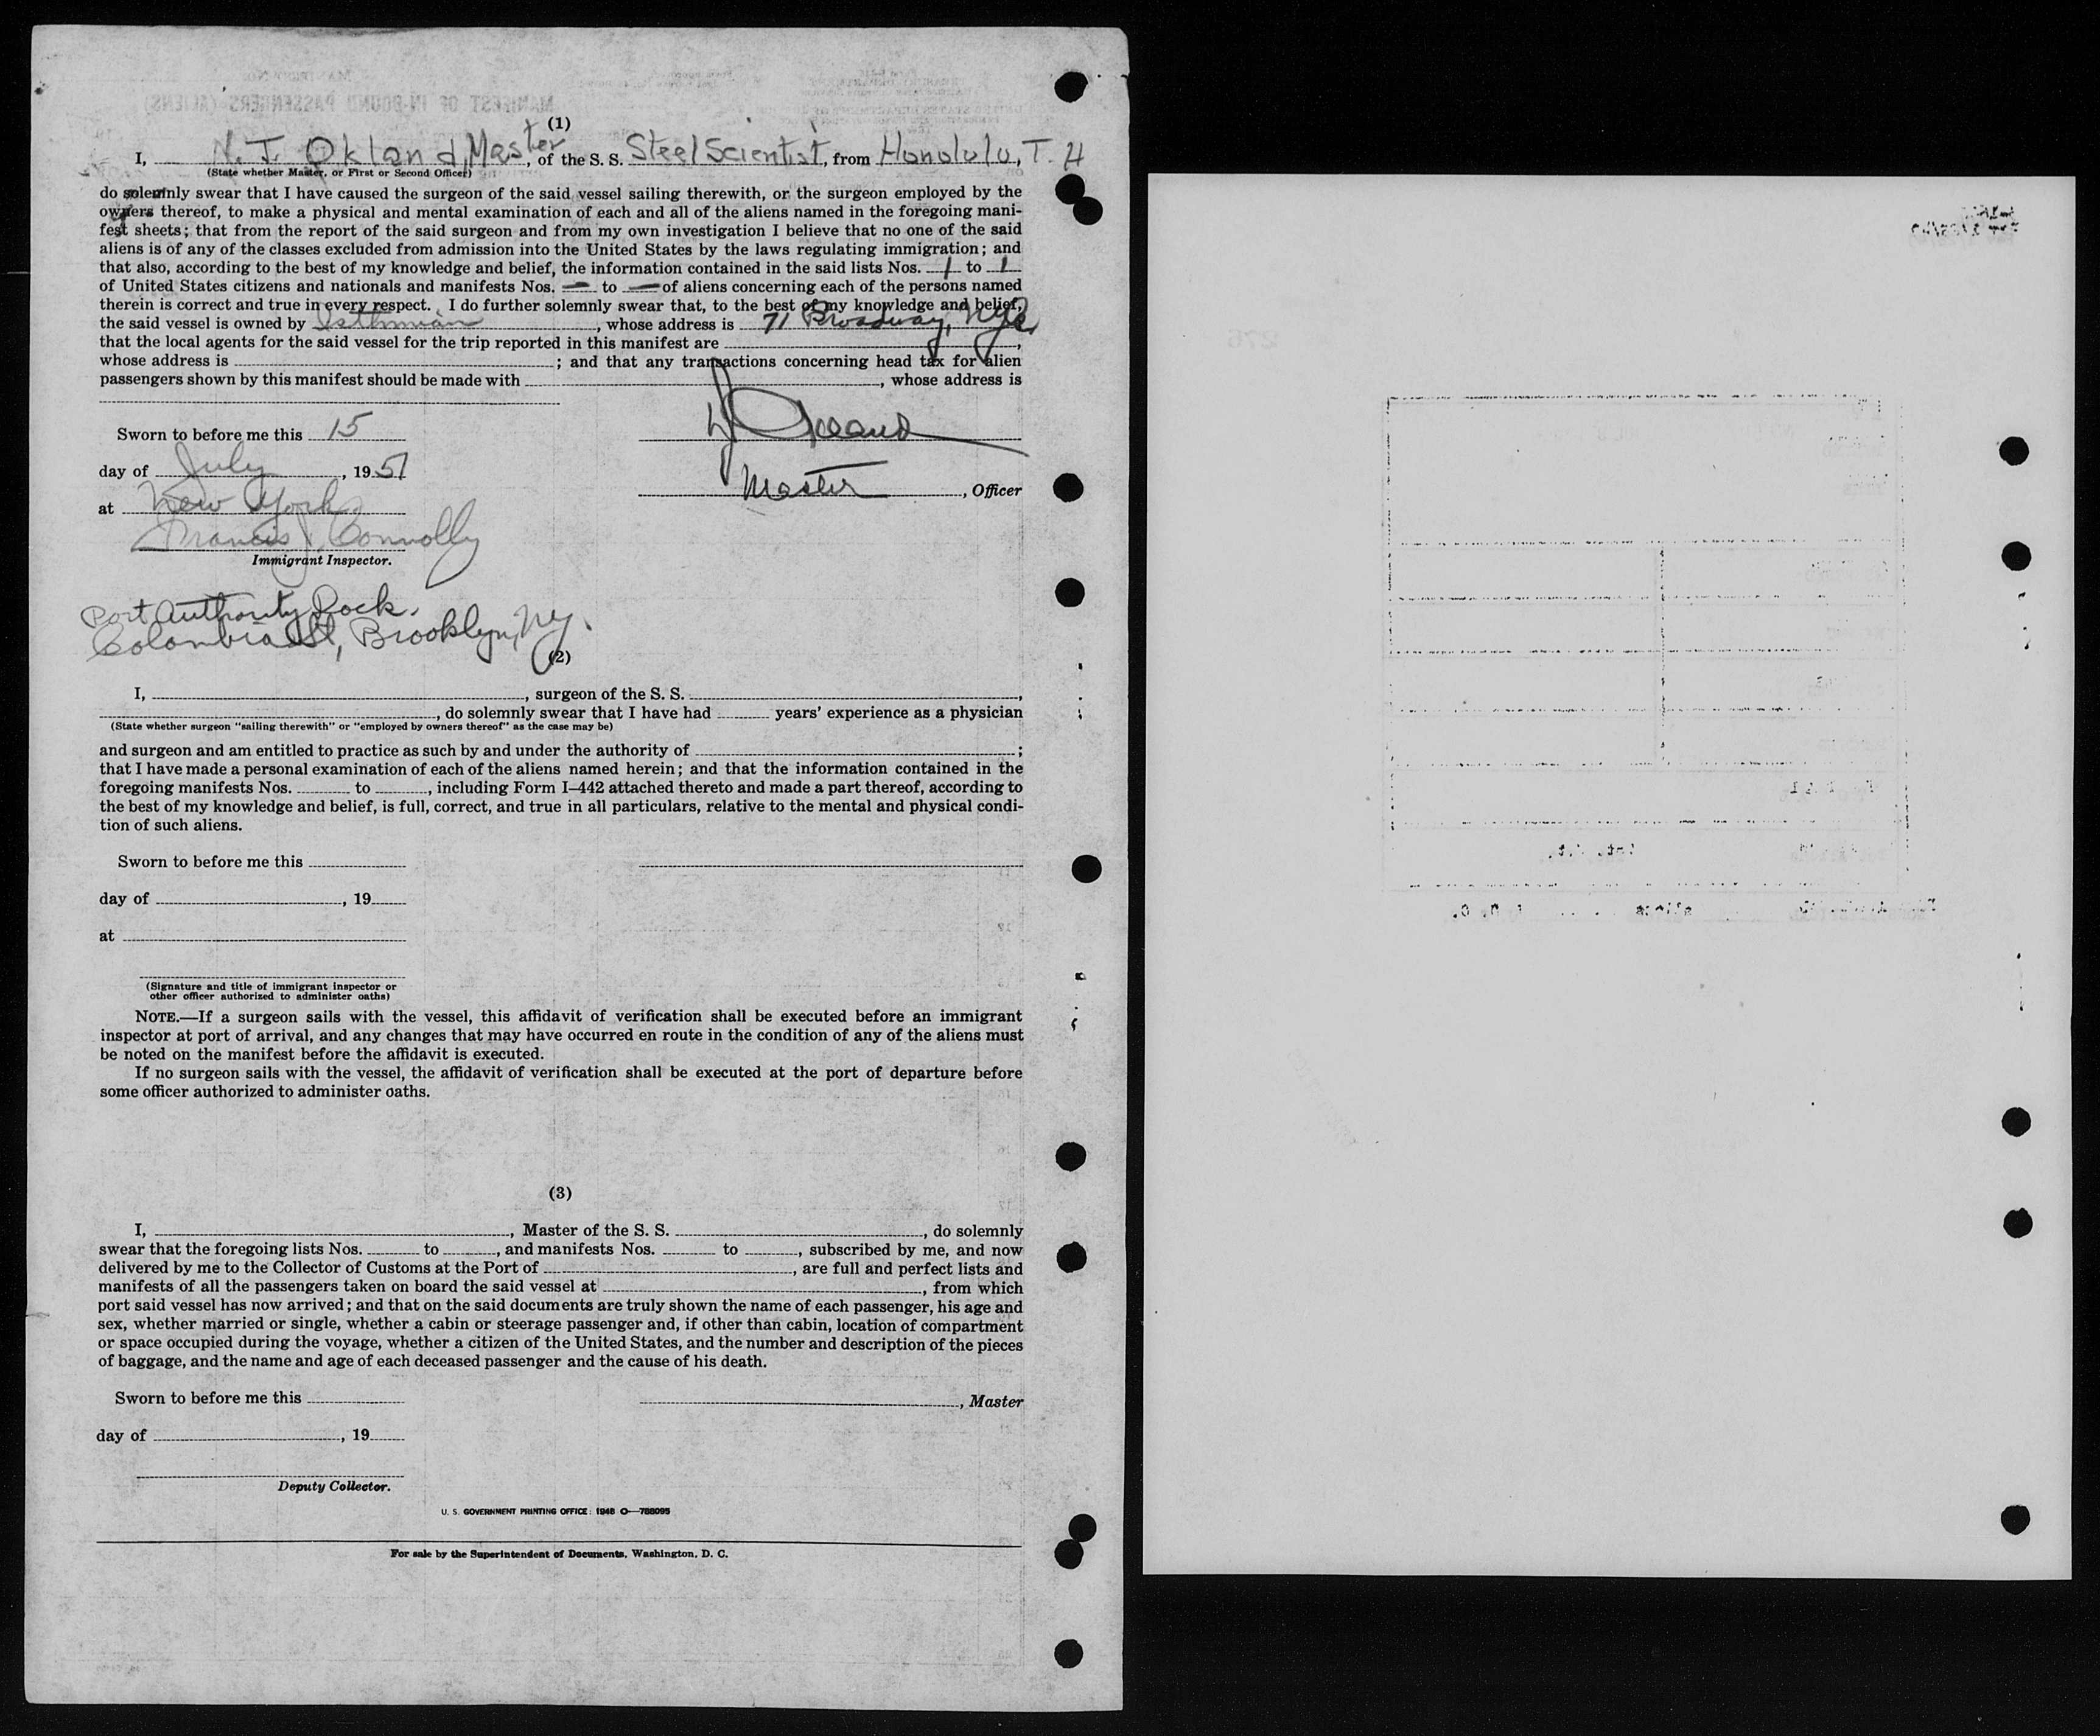 (1)
I, N. J. Okland, Master, of the S. S. Steel Scientist, from Honolulu, T. H
(State whether Master, or First or Second Officer)
do solemnly swear that I have caused the surgeon of the said vessel sailing therewith, or the surgeon employed by the
owners thereof, to make a physical and mental examination of each and all of the aliens named in the foregoing mani-
fest sheets; that from the report of the said surgeon and from my own investigation I believe that no one of the said
aliens is of any of the classes excluded from admission into the United States by the laws regulating immigration; and
that also, according to the best of my knowledge and belief, the information contained in the said lists Nos. 1 to 1
of United States citizens and nationals and manifests Nos. — to — of aliens concerning each of the persons named
therein is correct and true in every respect. I do further solemnly swear that, to the best of my knowledge and belief,
the said vessel is owned by Isthmian, whose address is 71 Broadway, NYC
that the local agents for the said vessel for the trip reported in this manifest are ,
whose address is ; and that any transactions concerning head tax for alien
passengers shown by this manifest should be made with , whose address is
Sworn to before me this 15
day of July, 1951
Master, Officer
at New York
Francis J. Connolly
Immigrant Inspector.
Port Authority Dock.
Colombia St, Brooklyn, NY.
(2)
I, , surgeon of the S. S. ,
, do solemnly swear that I have had years' experience as a physician
(State whether surgeon "sailing therewith" or "employed by owners thereof" as the case may be)
and surgeon and am entitled to practice as such by and under the authority of ;
that I have made a personal examination of each of the aliens named herein; and that the information contained in the
foregoing manifests Nos. to , including Form I–442 attached thereto and made a part thereof, according to
the best of my knowledge and belief, is full, correct, and true in all particulars, relative to the mental and physical condi-
tion of such aliens.
Sworn to before me this
day of , 19
at
(Signature and title of immigrant inspector or
other officer authorized to administer oaths)
NOTE.—If a surgeon sails with the vessel, this affidavit of verification shall be executed before an immigrant
inspector at port of arrival, and any changes that may have occurred en route in the condition of any of the aliens must
be noted on the manifest before the affidavit is executed.
If no surgeon sails with the vessel, the affidavit of verification shall be executed at the port of departure before
some officer authorized to administer oaths.
(3)
I, , Master of the S. S. , do solemnly
swear that the foregoing lists Nos. to , and manifests Nos. to , subscribed by me, and now
delivered by me to the Collector of Customs at the Port of , are full and perfect lists and
manifests of all the passengers taken on board the said vessel at , from which
port said vessel has now arrived; and that on the said documents are truly shown the name of each passenger, his age and
sex, whether married or single, whether a cabin or steerage passenger and, if other than cabin, location of compartment
or space occupied during the voyage, whether a citizen of the United States, and the number and description of the pieces
of baggage, and the name and age of each deceased passenger and the cause of his death.
Sworn to before me this
, Master
day of , 19
Deputy Collector.
U. S. GOVERNMENT PRINTING OFFICE: 1948 O—788095
For sale by the Superintendent of Documents, Washington, D. C.